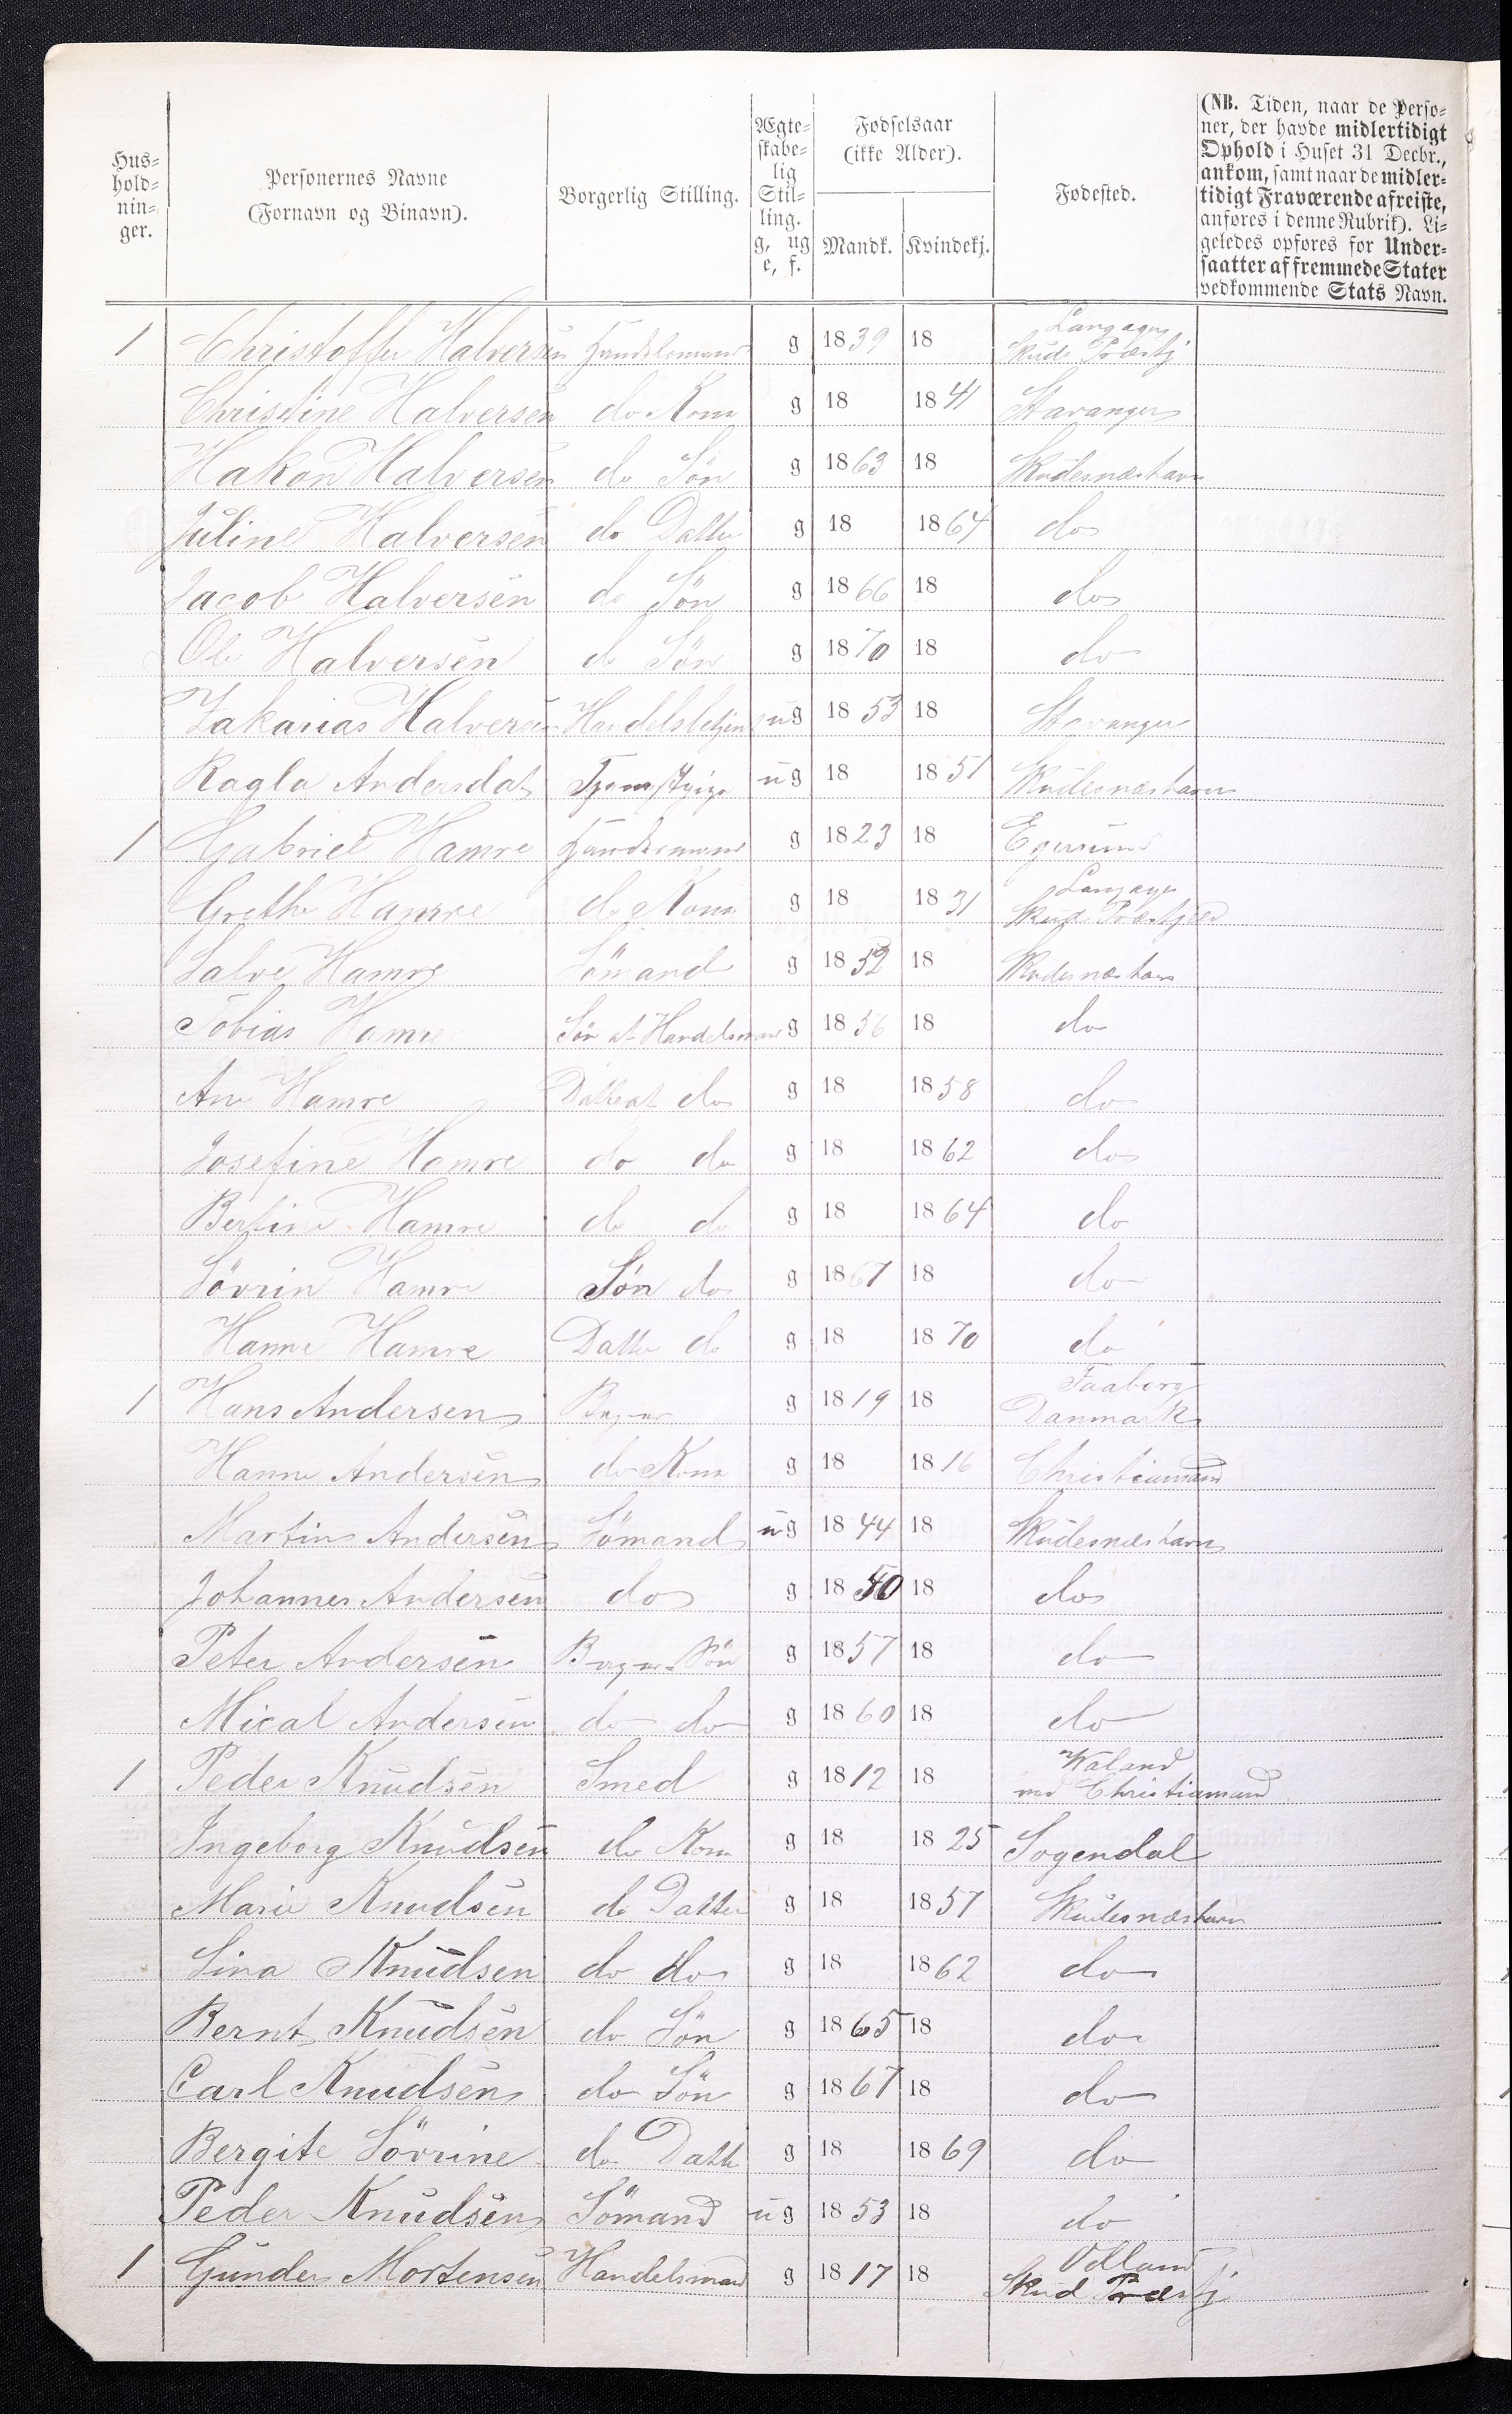 Hus-
hold-
nin-
ger.
Personernes Navne
(Fornavn og Binavn).
Borgerlig Stilling.
Ægte-
skabe-
lig
Stil-
ling.
g, ug
e, f.
Fødselsaar
(ikke Alder).
Mandk. Kvindekj.
Fødested.
(NB. Tiden, naar de Perso-
ner, der havde midlertidigt
Ophold i Huset 31 Decbr.,
ankom, samt naar de midler-
tidigt Fraværende afreiste,
anføres i denne Rubrik). Li-
geledes opføres for Under-
saatter af fremmede Stater
vedkommende Stats Navn.
Langager
1 Christoffer Halversen Handelsmand g 1839 18 Skude Præstgj
Christine Halversen do Kone g 18 1841 Stavanger
Hakon Halversen do Sön g 1863 18 Skudesnæshavn
Juline Halversen do Datter g 18 1864 do
Jacob Halversen do Sön g 1866 18 do
Ole Halversen do Sön g 1870 18 do
Zakarias Halversen Handelsbetjent ug 1853 18 Stavanger
Ragla Andersdat ug 18 1851 Skudesnæshavn
1 Gabriel Hamre Handelsmand g 1823 18 Egersund
Langager
Grethe Hamre do Kone g 18 1831 Skud Præstgjeld
Salve Hamre Sömand g 1852 18 Skudesnæshavn
Tobias Hamre Sön at Handelsmand g 1856 18 do
Ane Hamre Datter at do g 18 1858 do
Josefine Hamre do do g 18 1862 do
Bertine Hamre do do g 18 1864 do
Sövrin Hamre Sön do g 1867 18 do
Hanne Hamre Datter do g 18 1870 do
Faaborg
1 Hans Andersen Bager g 1819 18 Danmark
Hanne Andersen do Kone g 18 1816 Christiansand
Martin Andersen Sömand ug 1844 18 Skudesnæshavn
Johannes Andersen do g 1850 18 do
Peter Andersen Bager Sön g 1857 18 do
Mical Andersen do do g 1860 18 do
Waland
1 Peder Knudsen Smed g 1812 18 ved Christiansand
Ingeborg Knudsen do Kone g 18 1825 Sogendal
Marie Knudsen do Datter g 18 1857 Skudesnæshavn
Sina Knudsen do do g 18 1862 do
Bernt Knudsen do Sön g 1865 18 do
Carl Knudsen do Sön g 1867 18 do
Bergite Sövrine do Datter g 18 1869 do
Peder Knudsen Sömand ug 1853 18 do
1 Gunder Mortensen Handelsmand g 1817 18 Skud Præstgj